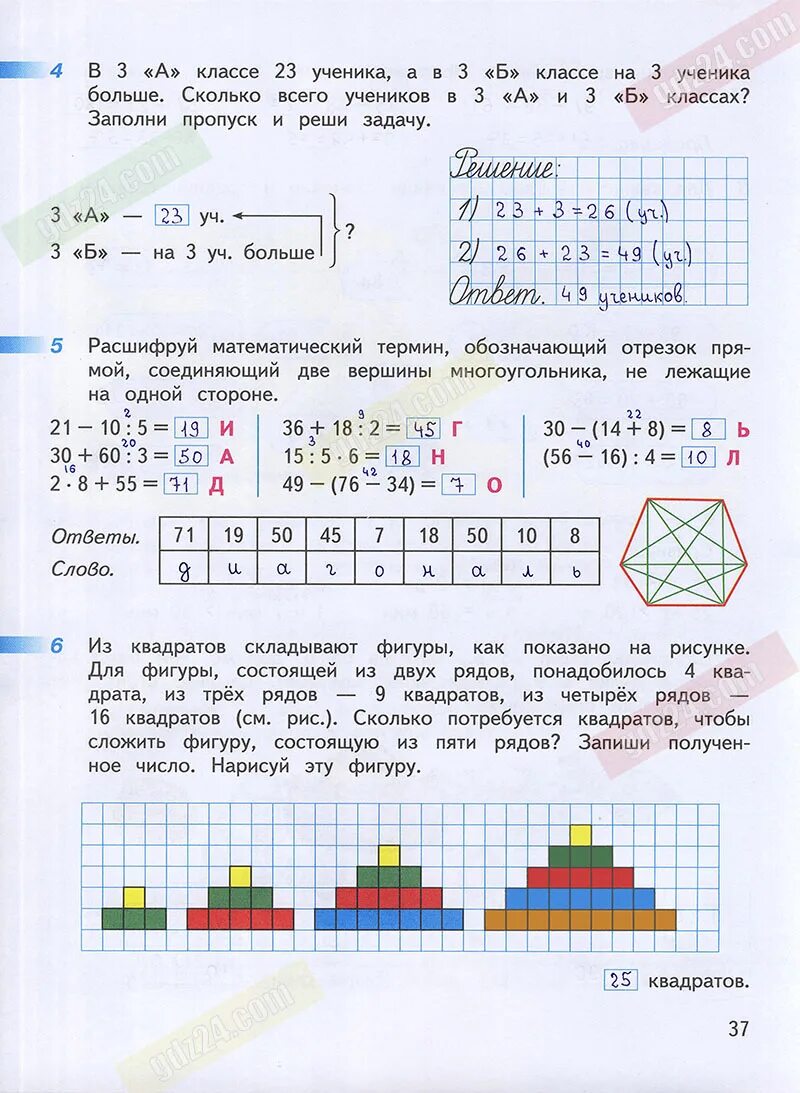 gdz24.com
4 В 3 «А» классе 23 ученика, а в 3 «Б» классе на 3 ученика
больше. Сколько всего учеников в 3 «А» и 3 «Б» классах?
Заполни пропуск и реши задачу.
gdz24.com
Решение:
3 «А» — 23 уч.
1) 23 + 3 = 26 (уч.)
?
3 «Б» — на 3 уч. больше
2) 26 + 23 = 49 (уч.)
Ответ. 49 учеников.
5 Расшифруй математический термин, обозначающий отрезок пря-
мой, соединяющий две вершины многоугольника, не лежащие
на одной стороне.
gdz24.com
2 9 22
21 – 10 : 5 = 19 И 36 + 18 : 2 = 45 Г 30 – (14 + 8) = 8 Ь
20 3 40
30 + 60 : 3 = 50 А 15 : 5 · 6 = 18 Н (56 – 16) : 4 = 10 Л
16 42
2 · 8 + 55 = 71 Д 49 – (76 – 34) = 7 О
Ответы. 71 19 50 45 7 18 50 10 8
Слово. д и а г о н а л ь
6 Из квадратов складывают фигуры, как показано на рисунке.
Для фигуры, состоящей из двух рядов, понадобилось 4 ква-
драта, из трёх рядов — 9 квадратов, из четырёх рядов —
16 квадратов (см. рис.). Сколько потребуется квадратов, чтобы
сложить фигуру, состоящую из пяти рядов? Запиши получен-
ное число. Нарисуй эту фигуру.
gdz24.com
25 квадратов.
gdz24.com
37